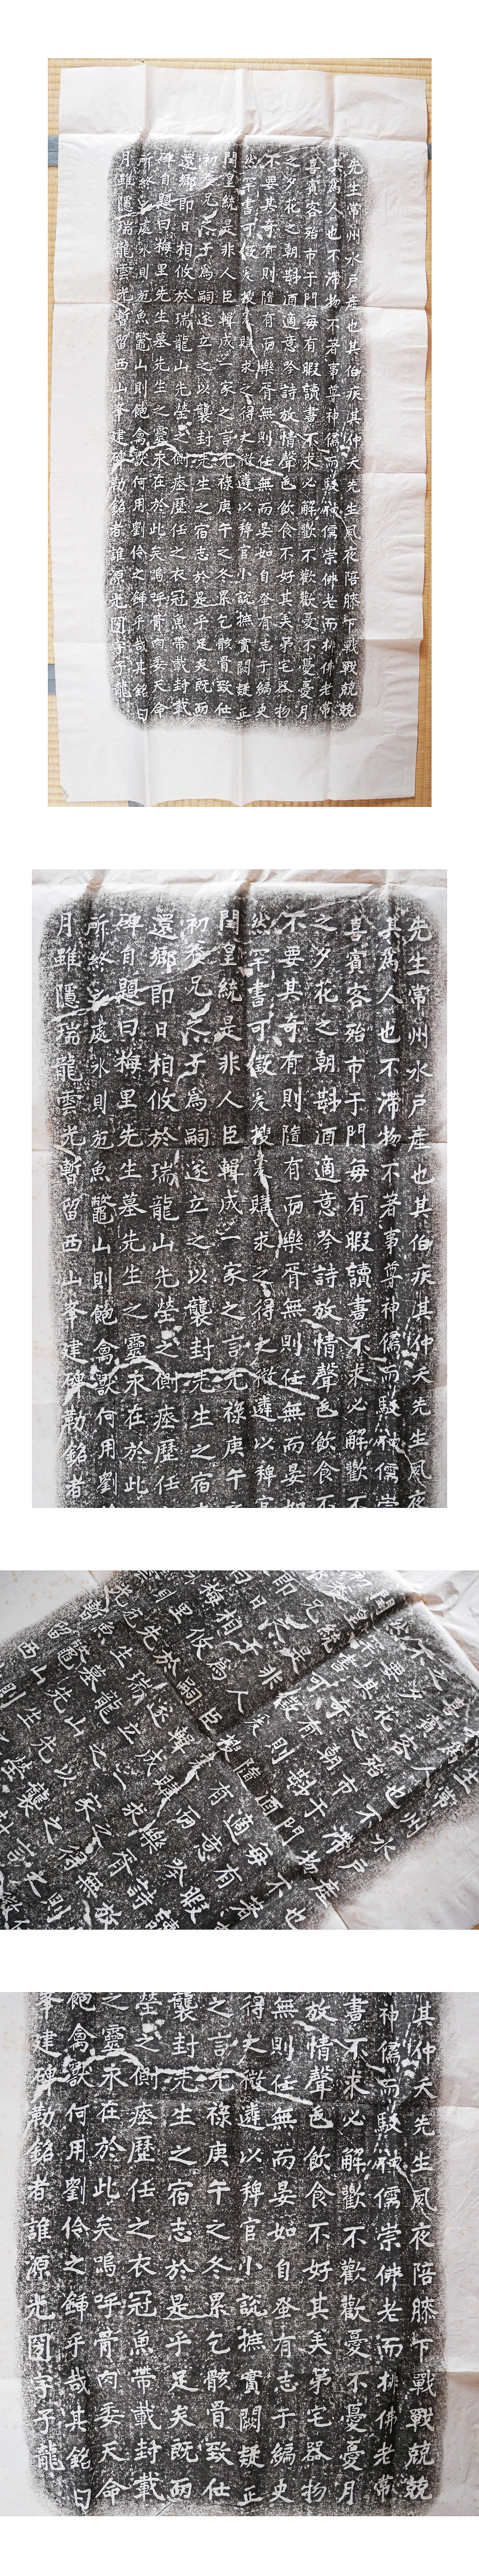 先生常州水戸産也其伯疾其仲夭先生夙夜陪膝下戰戰兢兢
其爲人也不滯物不著事尊神儒而駁神儒崇佛老而排佛老常
喜賓客殆市于門毎有暇讀書不求必解歡不歡歡憂不憂憂月
之夕花之朝斟酒適意吟詩放情聲色飲食不好其美第宅器物
不要其奇有則隨有而樂胥無則任無而晏如自蚤有志于編史
然罕書可徴爰搜爰購求之得之微遴以稗官小説摭實闕疑正
閏皇統是非人臣輯成一家之言元禄庚午之冬累乞骸骨致仕
初養兄之子爲嗣遂立之以襲封先生之宿志於是乎足矣既而
還郷即日相攸於瑞龍山先塋之側瘞歴任之衣冠魚帶載封載
碑自題曰梅里先生墓先生之靈永在於此矣嗚呼骨肉委天命
所終之處水則施魚鼈山則飽禽獸何用劉伶之鍤乎哉其銘曰
月雖隱瑞龍雲光暫留西山峯建碑勒銘者誰源光圀字子龍